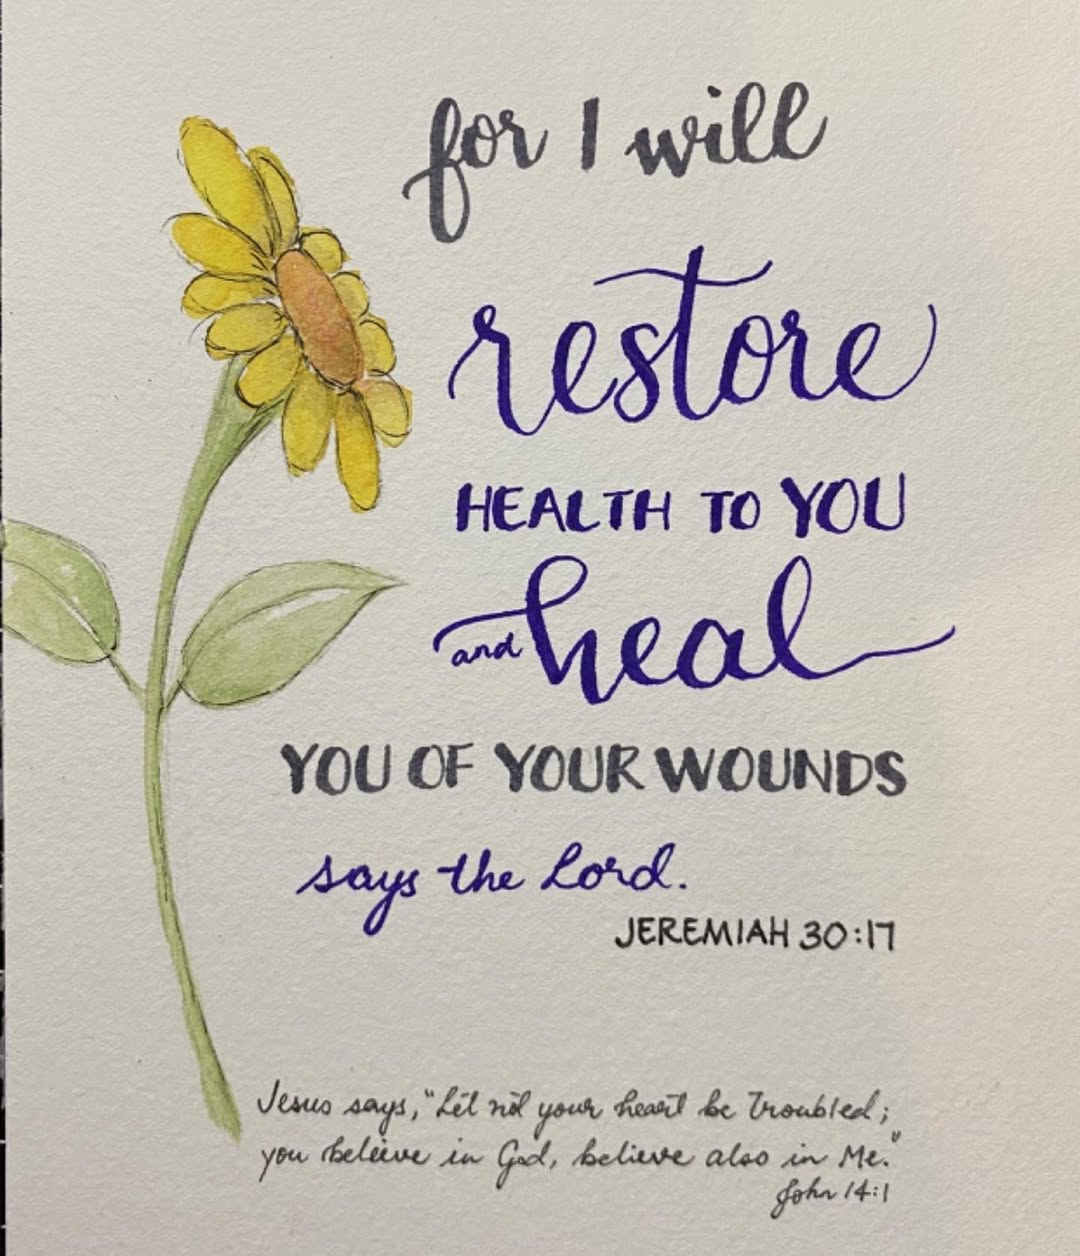 for I will
restore
HEALTH TO YOU
and heal
YOU OF YOUR WOUNDS
says the Lord.
JEREMIAH 30:17
Jesus says, "Let not your heart be troubled;
you believe in God, believe also in Me."
John 14:1